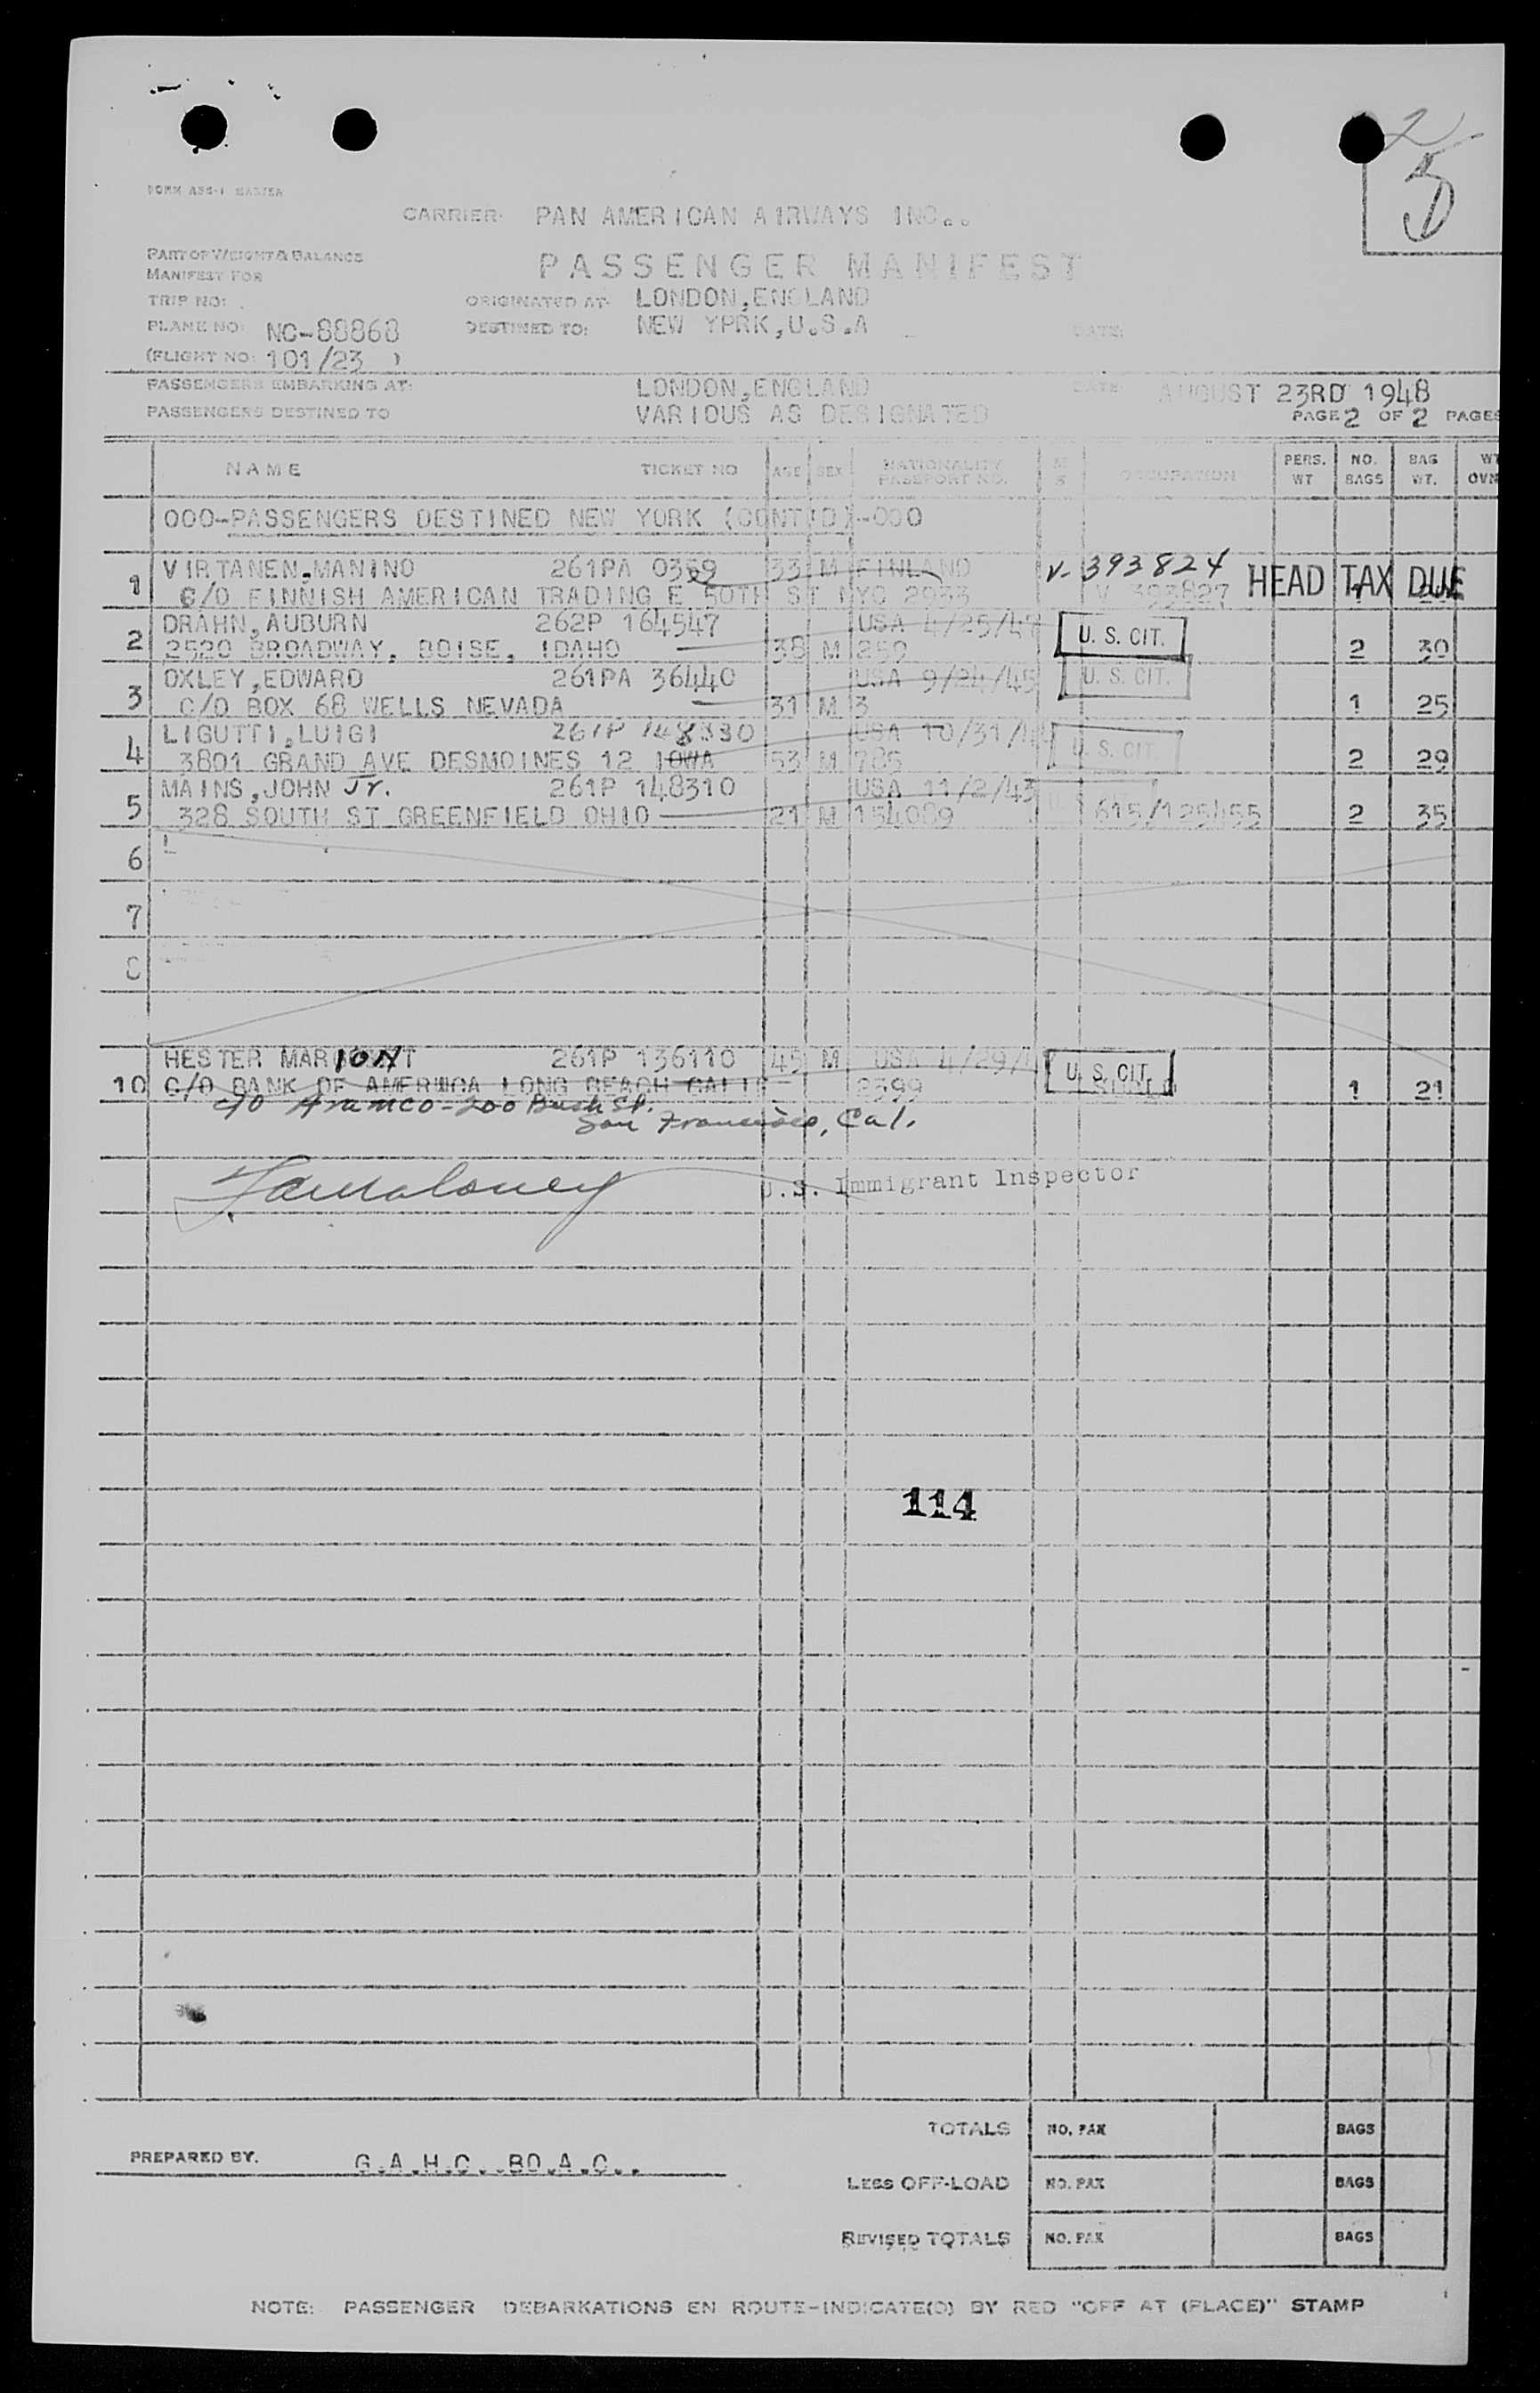 2
5
FORM ASS-1 MASTER
CARRIER: PAN AMERICAN AIRWAYS INC..
PART OF WEIGHT & BALANCE
MANIFEST FOR
PASSENGER MANIFEST
TRIP NO: ORIGINATED AT: LONDON,ENGLAND
PLANE NO: NC-88868 DESTINED TO: NEW YPRK,U.S.A DATE:
(FLIGHT NO: 101/23 )
PASSENGERS EMBARKING AT: LONDON,ENGLAND DATE: AUGUST 23RD 1948
PASSENGERS DESTINED TO VARIOUS AS DESIGNATED PAGE 2 OF 2 PAGES
NAME TICKET NO AGE SEX NATIONALITY PASSPORT NO. M S OCCUPATION PERS. WT NO. BAGS BAG WT. WT OVN
000-PASSENGERS DESTINED NEW YORK (CONT'D)-000
1 VIRTANEN,MANINO 261PA 0359 33 M FINLAND V-393824 HEAD TAX DUE
C/O FINNISH AMERICAN TRADING E 50TH ST NYC 2933 V 393827
DRAHN,AUBURN 262P 164547 USA 4/25/47 U. S. CIT.
2 2520 BROADWAY, BOISE, IDAHO 38 M 259 2 30
OXLEY,EDWARD 261PA 36440 USA 9/24/45 U. S. CIT.
3 C/O BOX 68 WELLS NEVADA 31 M 3 1 25
LIGUTTI,LUIGI 261P 148330 USA 10/31/ U. S. CIT
4 3801 GRAND AVE DESMOINES 12 IOWA 53 M 785 2 29
MAINS,JOHN Jr. 261P 148310 USA 11/2/43
5 328 SOUTH ST GREENFIELD OHIO 21 M 154089 615/125455 2 35
6
7
8
HESTER MARION 261P 136110 45 M USA 4/29/ U. S. CIT.
10 C/O BANK OF AMERICA LONG BEACH CALIF 2399 1 21
c/o Aramco-200 Bush St.
San Francisco, Cal.
U.S. Immigrant Inspector
114
TOTALS NO. PAX BAGS
PREPARED BY. G.A.H.C..BO.A.C..
LESS OFF-LOAD NO. PAX BAGS
REVISED TOTALS NO. PAX BAGS
NOTE: PASSENGER DEBARKATIONS EN ROUTE-INDICATE(D) BY RED "OFF AT (PLACE)" STAMP